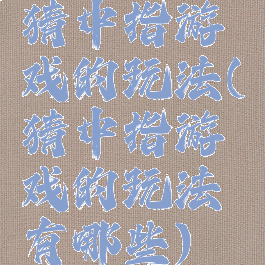 猜中指游
戏的玩法(
猜中指游
戏的玩法
有哪些)